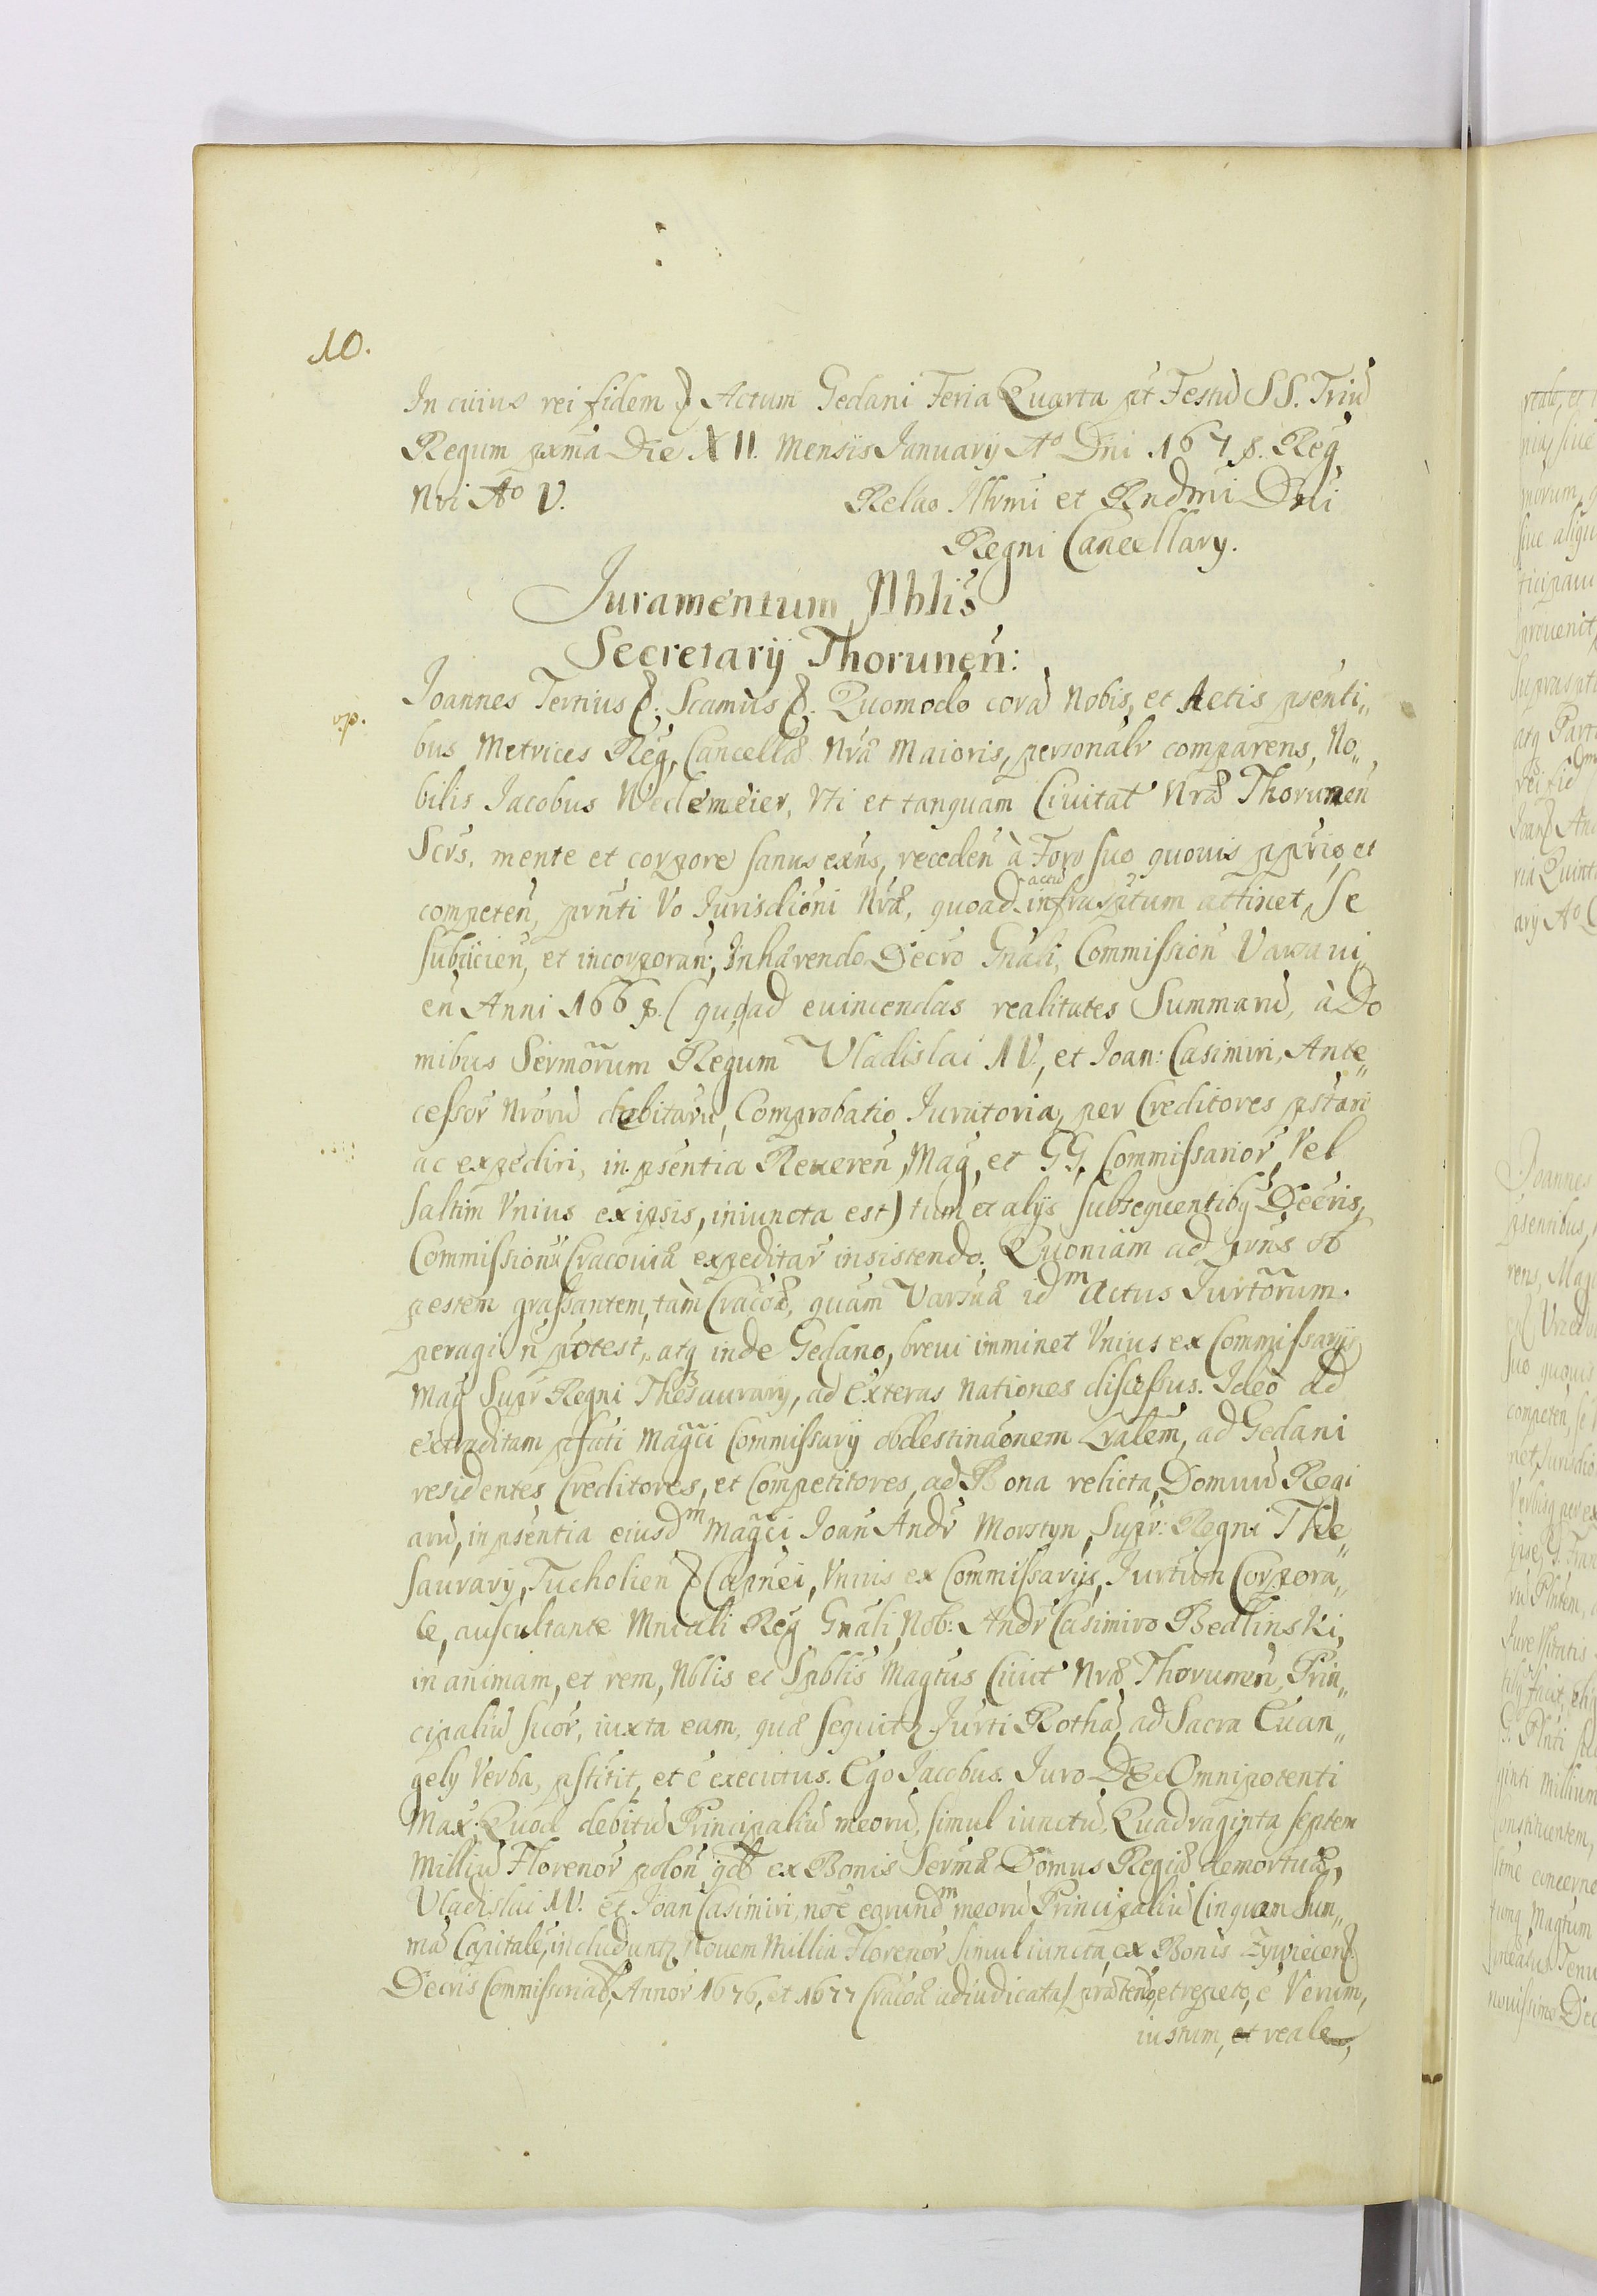 10.
In cuius rei fidem & Actum Gedani Feria Quarta pt Festū SS. Triū
Regum pxma Die XII. Mensis Ianuarij Ao Dni 1678. Reg
Nri Ao V. Relao Illrmi et Rndmi Dni
Regni Cancellary.
Juramentum Nblis
Secretarij Thorunen:
op.
Joannes Tertius &. Scamus &. Quomodo corā Nobis, et Actis psenti„
bus Metrices Reg, Cancellæ Nræ Maioris, personalr comparens, No„
bilis Iacobus Wedemeier, Vti et tanquam Ciuitat Nræ Thorunen
Scrs, mente et corpore sanus exns, receden à Foro suo quouis pprio, et
competen, prnti Vo Jurisdioni Nræ, quoad actū infrasptum attinet, se
subijcien, et incorporan; Inhærendo Decro Gnali, Commission Varsaui„
en Anni 1668. (quoad euincendas realitates Summarū, à Do
mibus Sermorum Regum Vladislai IV, et Ioan: Casimiri, Ante„
cessor Nrorū debitarū, Comprobatio Iuratoria, per Creditores pstari
ac expediri, in psentia Reueren, Mag, et GG, Commissarior, Vel
saltim Vnius ex ipsis, iniuncta est) tum et alijs subsequentibq Decris,
Commissionū Cracouiæ expeditar insistendo. Quoniam ad prns ob
pestem grassantem, tàm Cracoæ, quàm Varsuæ idm Actus Jurtorum
peragi n potest, atq inde Gedano, breui imminet Vnius ex Commissarijs
Mag Supr Regni Thesaurarij, ad Exteras Nationes discessus. Ideo ad
extraditam pfati Magci Commissarij obdestinaonem Lralem, ad Gedani
residentes Creditores, et Competitores, ad Bona relicta Domuū Regi
arū, in psentia eiusdm Magci Joan Andr Morstyn, Supr: Regni The„
saurarij, Tucholien & Capnei, Vnius ex Commissarijs, Jurtum Corpora„
le, auscultante Mnrali Reg Gnali, Nob: Andr Casimiro Bedlinski,
in animam, et rem, Nblis et Spblis Magtus Ciuit Nræ Thorunen, Prin„
cipaliū suor, iuxta eam, quæ sequitr Jurti Rothā, ad Sacra Euan„
gely Verba, pstitit, et ē executus. Ego Jacobus. Juro Deo Omnipotenti
Max: Quod debitū Principaliū meorū, simul iunctū, Quadraginta septem
Milliū Florenor polon, qd ex Bonis Sermæ Domus Regiæ demortuæ,
Vladislai IV. et Joan Casimiri, noē eorundm meorū Principaliū (in quam Sum„
mā Capitalē, includuntr Nouem Millia Florenor simul iuncta, ex Bonis Zywiecen
Decris Commissorial, Annor 1676, et 1677 Cracoæ adiudicata) prætendo, et repeto, ē Verum,
iustum, et reale,